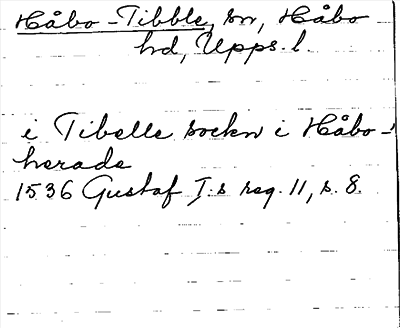 Håbo-Tibble, sn, Håbo
hd, Upps. l.
i Tibelle sockn i Håbo-
herade
1536 Gustaf I:s reg. 11, s. 8.